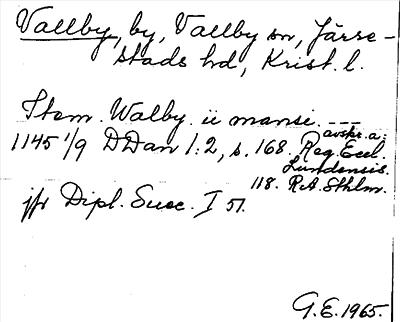 Vallby, by, Vallby sn, Järre-
stads hd, Krist. l.
Item. Walby. ii mansi. ---
1145 1/9 DDan 1:2, s. 168. avskr. a:
Reg. Eccl.
Lundensis.
118. R.A. Sthlm.
jfr Dipl. Suec. I 51.
G.E. 1965.